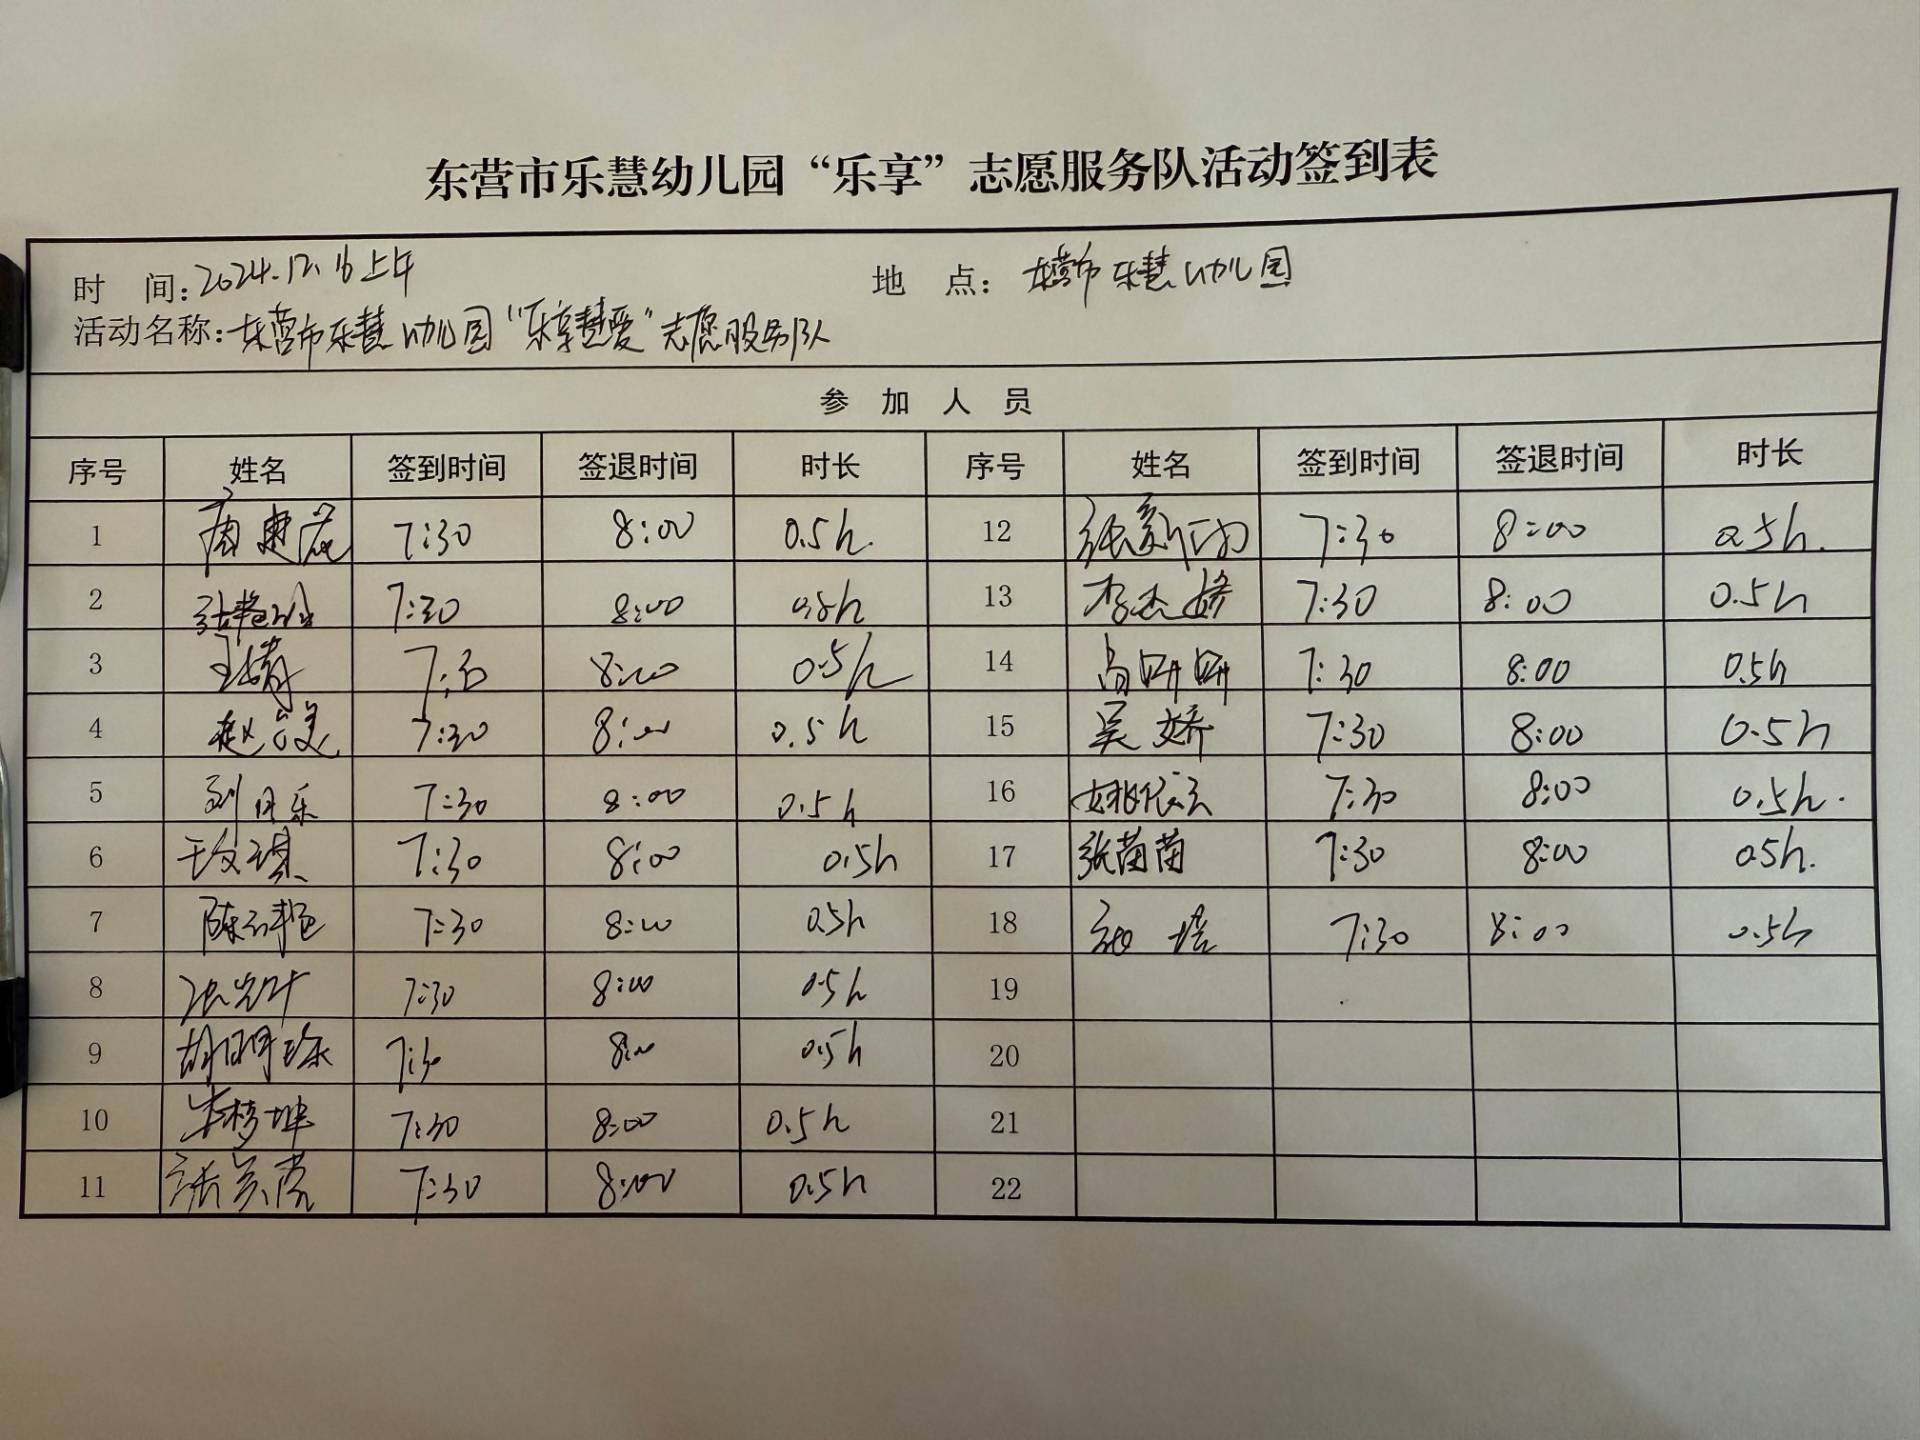 东营市乐慧幼儿园“乐享”志愿服务队活动签到表
时 间:2024.12.16上午 地 点: 东营市乐慧幼儿园
活动名称:东营市乐慧幼儿园“乐享慧爱”志愿服务队
参 加 人 员
序号 姓名 签到时间 签退时间 时长 序号 姓名 签到时间 签退时间 时长
1 7:30 8:00 0.5h. 12 7:30 8:00 0.5h.
2 7:30 8:00 0.5h 13 李杰娇 7:30 8:00 0.5h
3 王倩 7:30 8:00 0.5h 14 高妍妍 7:30 8:00 0.5h
4 7:30 8:00 0.5h 15 吴娇 7:30 8:00 0.5h
5 7:30 8:00 0.5h 16 姚依云 7:30 8:00 0.5h.
6 于文琪 7:30 8:00 0.5h 17 张苗苗 7:30 8:00 0.5h.
7 7:30 8:00 0.5h 18 7:30 8:00 0.5h
8 7:30 8:00 0.5h 19
9 胡明珠 7:30 8:00 0.5h 20
10 7:30 8:00 0.5h 21
11 7:30 8:00 0.5h 22